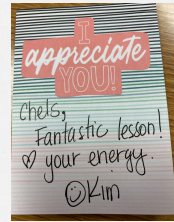 I
appreciate
YOU!
Chels,
Fantastic lesson!
♡ your energy.
☺Kim